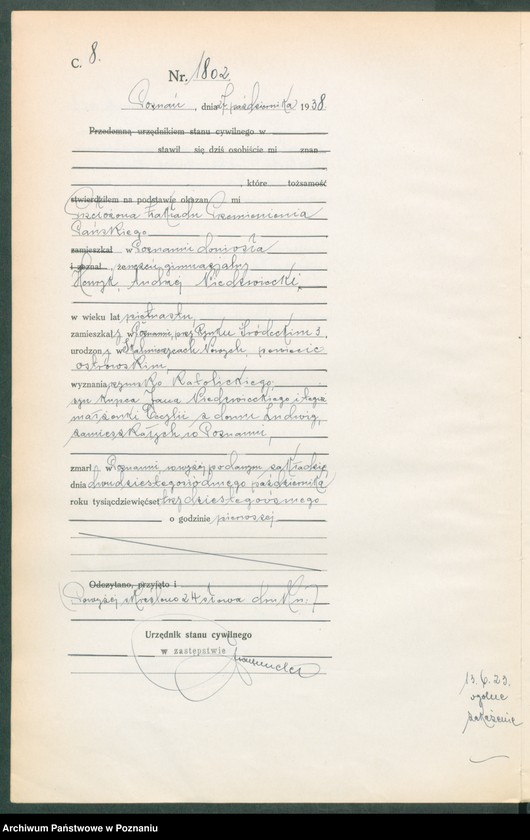 C. 8.
Nr. 1802.
Poznań, dnia 27 października 1938.
Przedemną urzędnikiem stanu cywilnego w
stawił się dziś osobiście mi znan
, które tożsamość
stwierdziłem na podstawie okazan mi
Przełożona Zakładu Przemienienia
Pańskiego
zamieszkał w Poznaniu doniosła
i zeznał, że uczeń gimnazjalny
Henryk, Andrzej Niedźwiecki,
w wieku lat piętnastu,
zamieszkały w Poznaniu, przy Rynku Śródeckim 3,
urodzony w Skalmierzycach Nowych, powiecie
ostrowskim,
wyznania rzymsko katolickiego
syn kupca Jana Niedźwieckiego i tegoż
małżonki Cecylii z domu Ludwig,
zamieszkałych w Poznaniu,
zmarł w Poznaniu w wyżej podanym zakładzie
dnia dwudziestegosiódmego października
roku tysiącdziewięćset trzydziestegoósmego
o godzinie pierwszej
Odczytano, przyjęto i
Powyżej skreślono 24 słowa druku.
Urzędnik stanu cywilnego
w zastępstwie
13. 6. 23.
ogólne
zakażenie
Archiwum Państwowe w Poznaniu